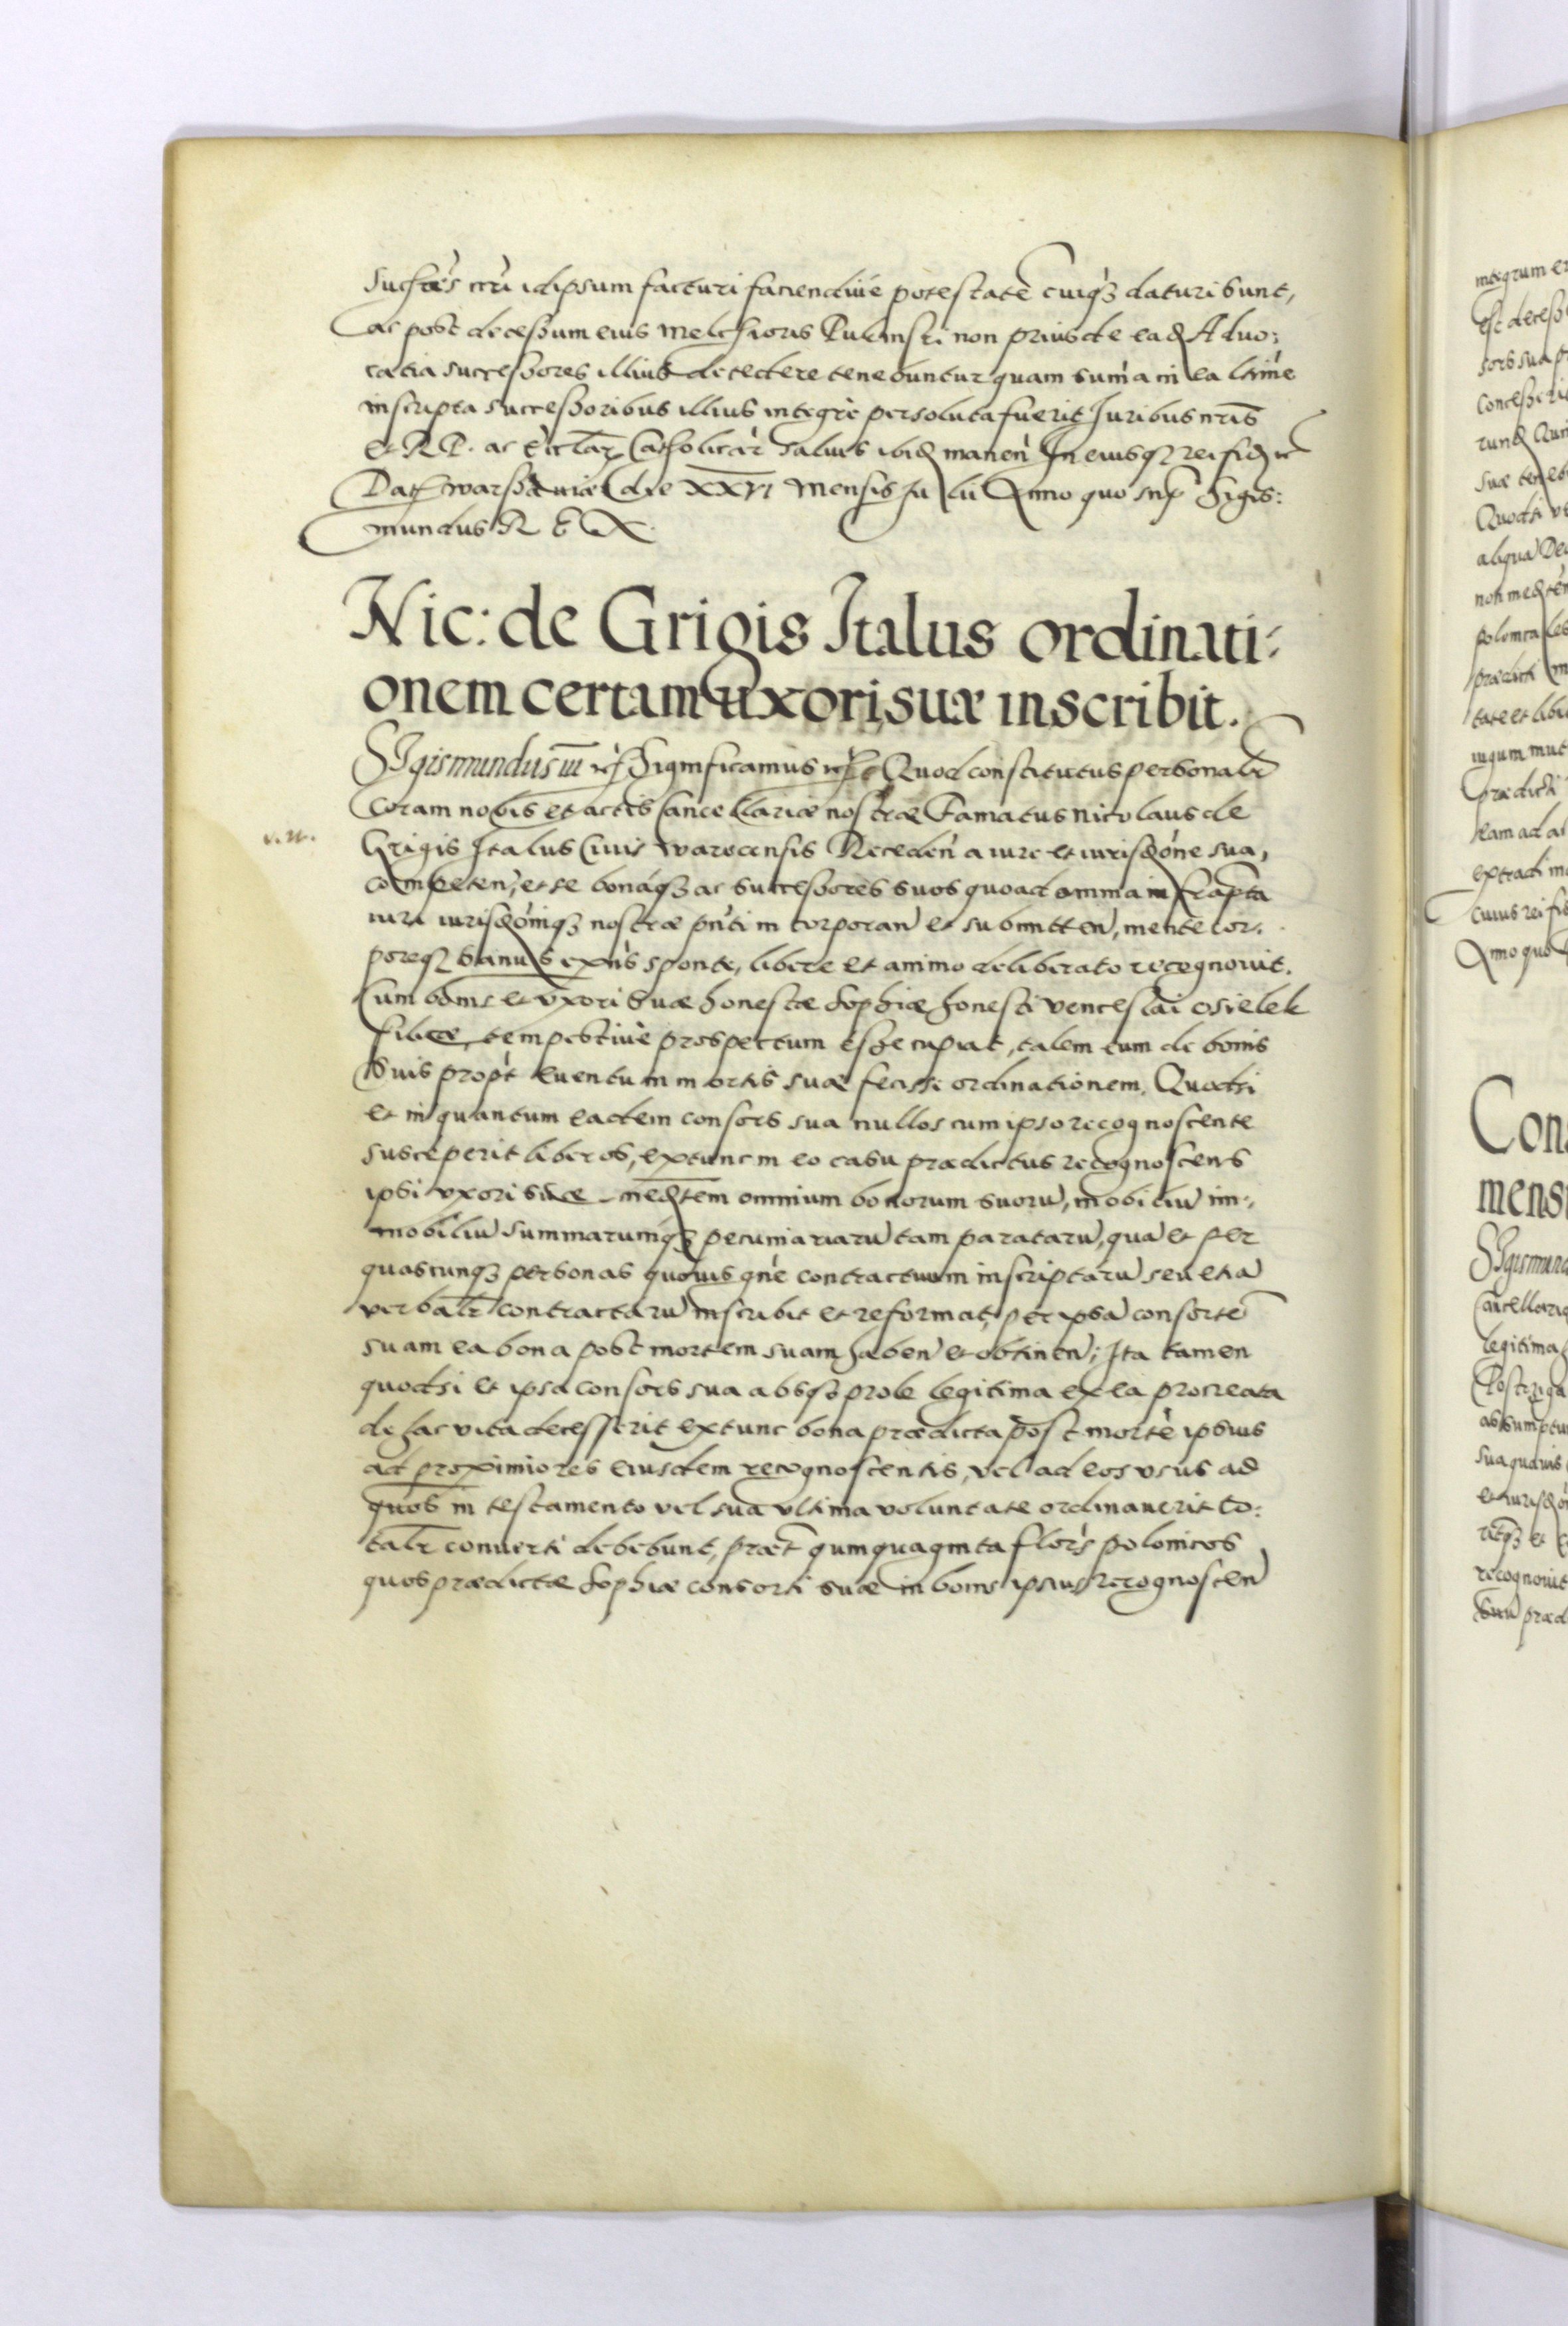 sucſrès nr̀i idipsum facturi faciendiuè potestatē cuiq̀ʒ daturi sunt,
ac post decessum eius Melchioris Rulinski non prius de eaḍ Aduo:
catia successores illius decedere tenebuntur quam sum̀a in ea ltìme
inscripta successoribus illius integrè persoluta fuerit Iuribus nr̄is
et R P. ac Ecclāʒ Catholicàr̀ saluis ibiḍ manen̄ In eiusqʒ rei fiḍ ec̄
Dat warssauiæ die XXVI Mensis Julii Anno quo sup̄ Sigis:
mundus R E X
Nic: de Grigis Italus ordinati:
onem certam uxori suæ inscribit.
Sigismundus iii etc Significamus etc Quod constitutus personalr̄
Coram nobis et actis Cancellariæ nostræ Famatus Nicolaus de
v. n.
Grigis Italus Ciuis Warecensis Receden̄ a iure et iurisdòne sua,
competen̄, et se bonáqʒ ac successores suos quoad omnia infrapta
iuri iurisdòniqʒ nostræ pn̄ti incorporan̄ et submitten̄, mente cor:
poreqʒ sanus exn̄s sponte, libere et animo deliberato recognouit.
Cum bōnis et vxori suæ honestæ Sophiæ honesti Venceslai Osielek
filiæ, tempestiuè prospectum esse cupiat, talem eum de bonis
suis propt̀ euentum mortis suæ fecisse ordinationem, Quodsi
et in quantum eadem consors sua nullos cum ipso recognoscente
susceperit liberos, extunc in eo casu prædictus recognoscens
ipsi vxori suæ meḍtem omnium bonorum suorū, mobiliū im:
mobiliū summarumqʒ pecuniariarū tam paratarū, quā et per
quascunqʒ personas quouis gn̄e contractuum inscriptarū seu etiā
verbalr̄ contractarū inscribit et reformat, per ipsā consortē
suam ea bona post mortem suam haben̄ et obtinen̄; Ita tamen
quodsi et ipsa consors sua absqʒ prole legitima ex ea procreata
de hac vita decesserit extunc bona prædicta post mortē ipsius
ad proximiores eiusdem recognoscentis, vel ad eos vsus ad
quos in testamento vel sua vltima voluntate ordinauerit to:
talr̄ conuerti debebunt, præt̄ quinquaginta flor̀s polonicos
quos prædictæ Sophiæ consorti suæ in bonis ipsius recognoscen̄